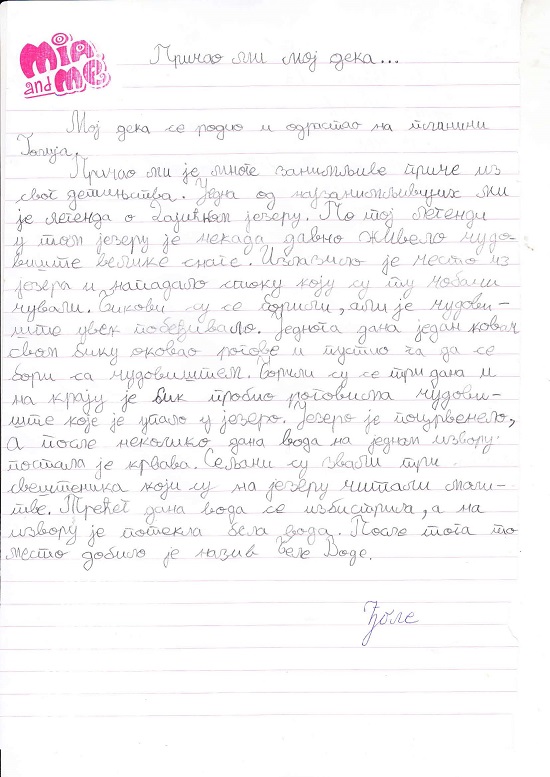 Mia and Me
Причао ми мој дека...
Мој дека се родио и одрастао на планини
Голија.
Причао ми је многе занимљиве приче из
свог детињства. Једна од најзанимљивијих ми
је легенда о Дајићком језеру. По тој легенди
у том језеру је некада давно живело чудо-
виште велике снаге. Излазило је често из
језера и нападало стоку коју су ту чобани
чували. Бикови су се борили, али је чудови-
ште увек побеђивало. Једнога дана један ковач
свом бику оковао рогове и пустио га да се
бори са чудовиштем. Борили су се три дана и
на крају је бик пробио роговима чудови-
ште које је упало у језеро. Језеро је поцрвенело,
а после неколико дана вода на једном извору
постала је крвава. Сељани су звали три
свештеника који су на језеру читали моли-
тве. Трећег дана вода се избистрила, а на
извору је потекла бела вода. После тога то
место добило је назив Беле Воде.
Ђоле